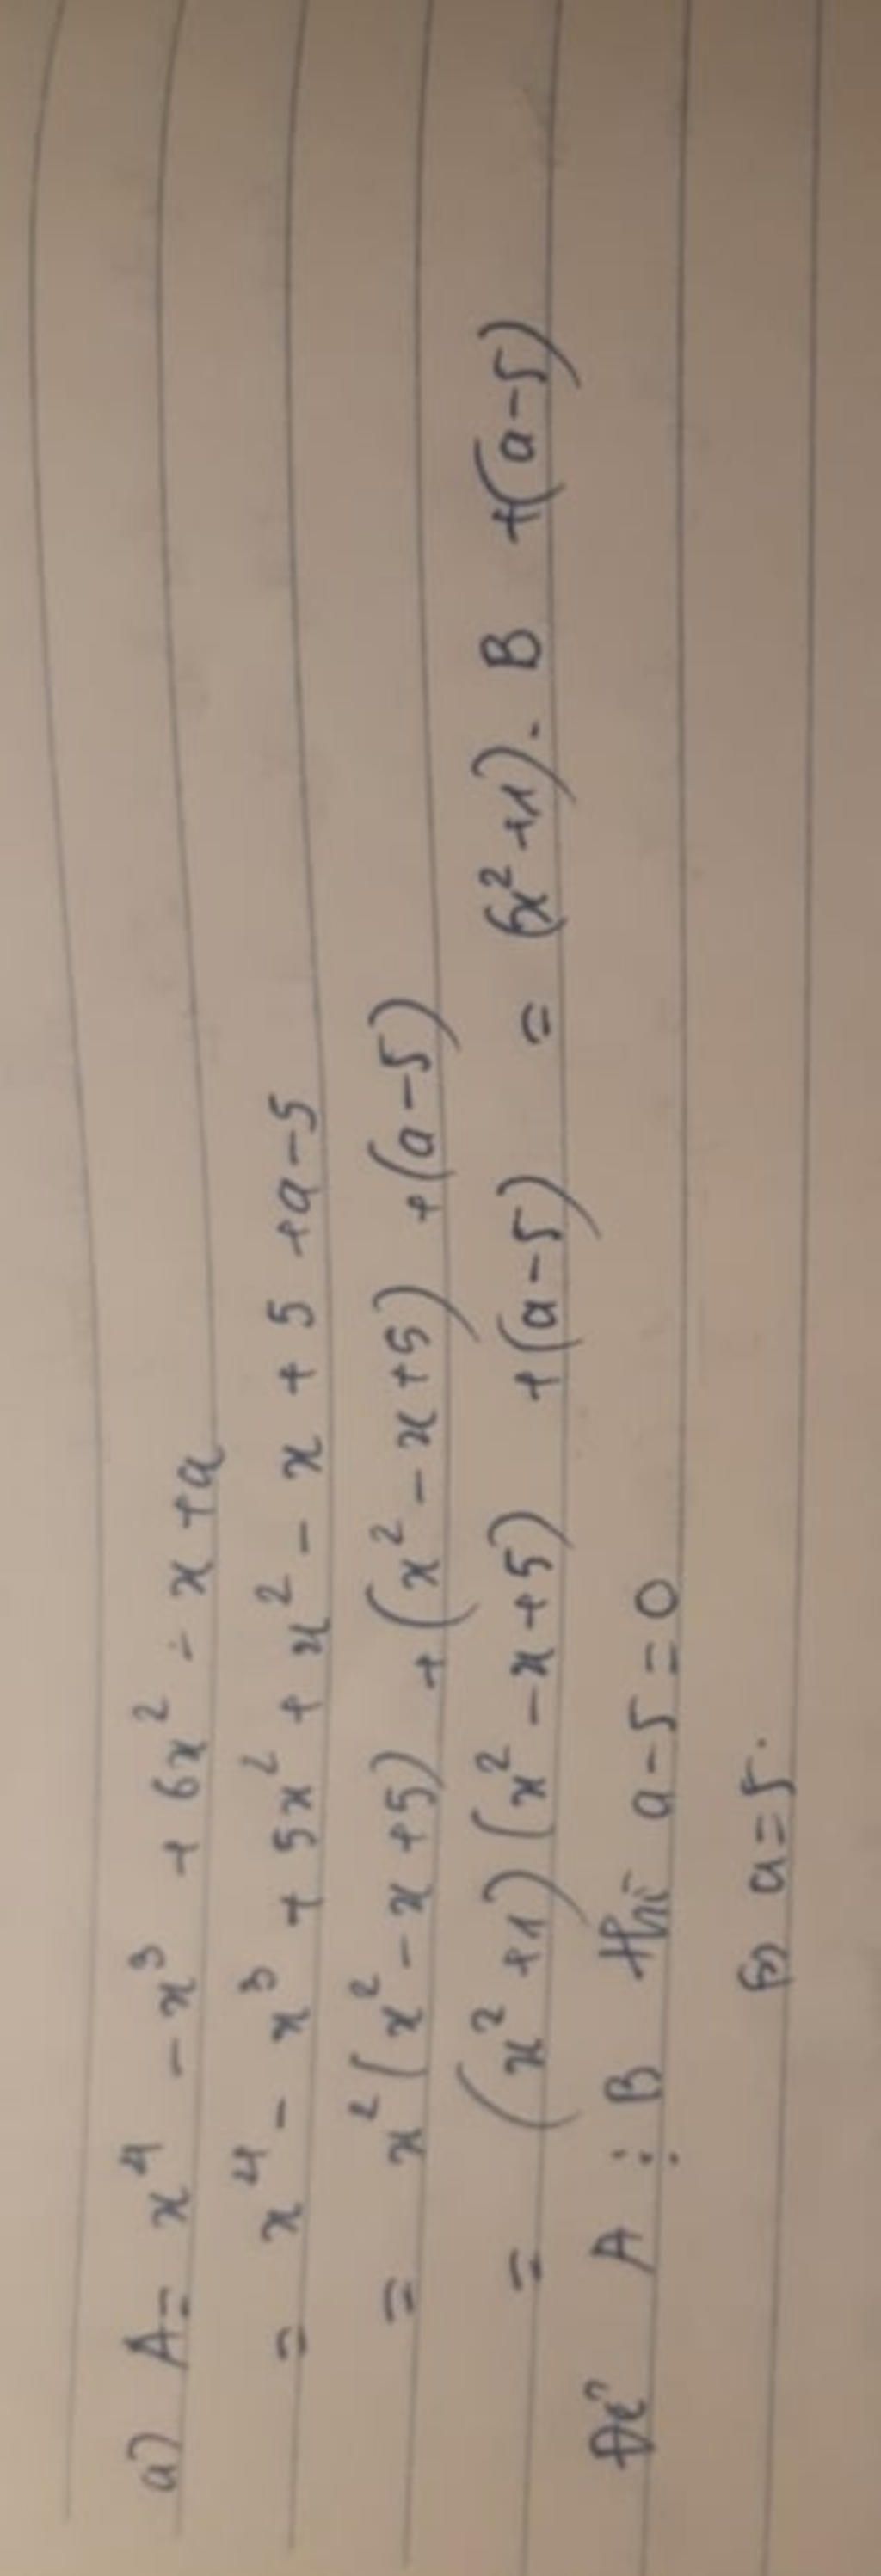 a) A = x⁴ - x³ + 6x² - x + a
= x⁴ - x³ + 5x² + x² - x + 5 + a - 5
= x²(x² - x + 5) + (x² - x + 5) + (a - 5)
= (x² + 1)(x² - x + 5) + (a - 5) = (x² + 1). B + (a - 5)
Để A ⋮ B thì a - 5 = 0
⇔ a = 5.